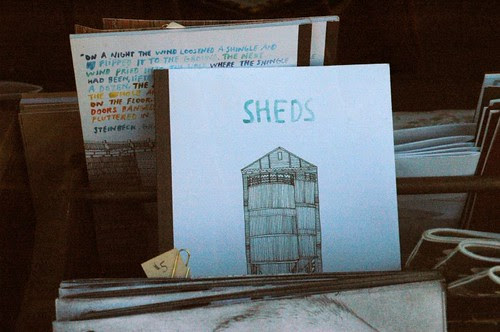 "ON A NIGHT THE WIND LOOSENED A SHINGLE AND
FLIPPED IT TO THE GROUND. THE NEXT
WIND PRIED WHERE THE SHINGLE
HAD BEEN,
A DOZEN. THE
ON THE FLOOR
DOORS BANG
FLUTTERED IN
STEINBECK
SHEDS
$5